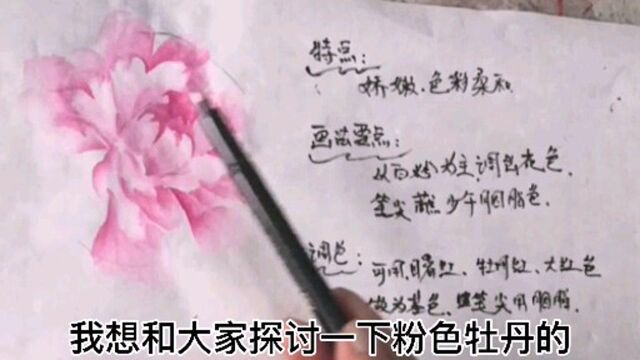 特点:
娇嫩、色彩柔和
画法要点:
以白粉为主调出花色,
笔尖蘸少许胭脂色.
调色:
可用曙红、牡丹红、大红色
做为基色,笔尖用胭脂.
我想和大家探讨一下粉色牡丹的